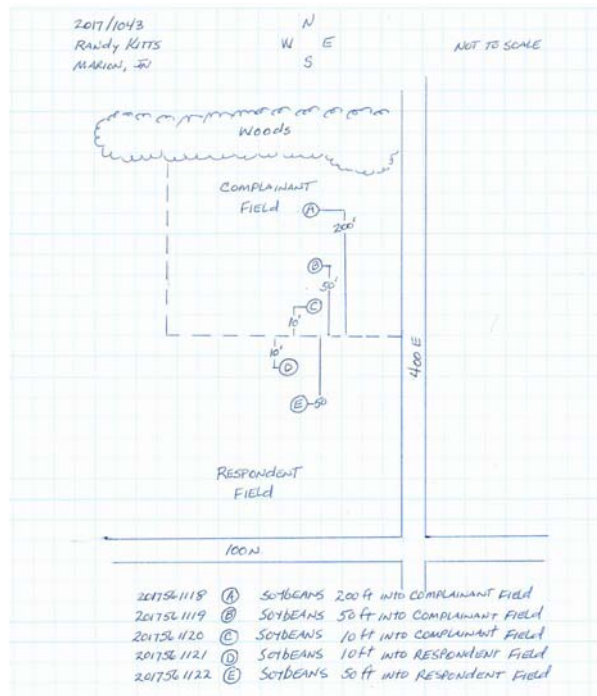 2017/1043
RANDY KITTS
MARION, IN
N
W E
S
NOT TO SCALE
WOODS
COMPLAINANT
FIELD
A
200'
B
50'
C
10'
10'
D
E
50
400 E
RESPONDENT
FIELD
100N
2017561118 A SOYBEANS 200 ft INTO COMPLAINANT FIELD
2017561119 B SOYBEANS 50 ft INTO COMPLAINANT FIELD
2017561120 C SOYBEANS 10 ft INTO COMPLAINANT FIELD
2017561121 D SOYBEANS 10 ft INTO RESPONDENT FIELD
2017561122 E SOYBEANS 50 ft INTO RESPONDENT FIELD